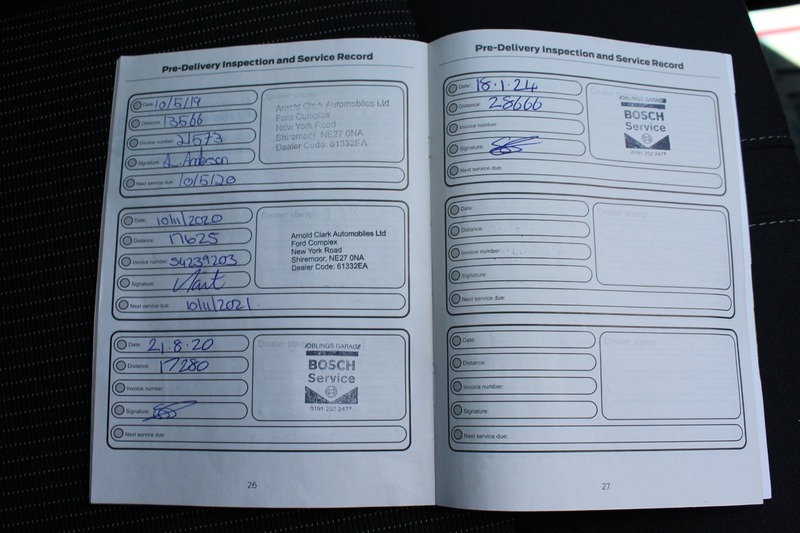 Pre-Delivery Inspection and Service Record
Date: 10/5/19
Distance: 13566
Invoice number: 21573
Signature: A. Anderson
Next service due: 10/5/20
Dealer stamp
Arnold Clark Automobiles Ltd
Ford Complex
New York Road
Shiremoor, NE27 0NA
Dealer Code: 61332EA
Date: 10/11/2020
Distance: 17625
Invoice number: 54239203
Signature:
Next service due: 10/11/2021.
Dealer stamp
Arnold Clark Automobiles Ltd
Ford Complex
New York Road
Shiremoor, NE27 0NA
Dealer Code: 61332EA
Date: 21.8.20
Distance: 17280
Invoice number:
Signature:
Next service due:
Dealer stamp
JOBLINGS GARAGE
BOSCH
Service
0191 252 2477
26
Pre-Delivery Inspection and Service Record
Date: 18.1.24
Distance: 28666
Invoice number:
Signature:
Next service due:
Dealer stamp
JOBLINGS GARAGE
BOSCH
Service
0191 252 2477
Date:
Distance:
Invoice number:
Signature:
Next service due:
Dealer stamp
Date:
Distance:
Invoice number:
Signature:
Next service due:
Dealer stamp
27